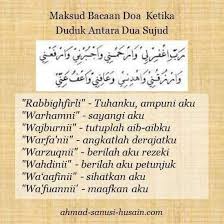 Maksud Bacaan Doa Ketika
Duduk Antara Dua Sujud
رَبِّ اغْفِرْلِيْ وَارْحَمْنِيْ وَاجْبُرْنِيْ وَارْفَعْنِيْ
وَارْزُقْنِيْ وَاهْدِنِيْ وَعَافِنِيْ وَاعْفُ عَنِّيْ
"Rabbighfirli" - Tuhanku, ampuni aku
"Warhamni" - sayangi aku
"Wajburnii" - tutuplah aib-aibku
"Warfa'nii" - angkatlah derajatku
"Warzuqnii" - berilah aku rezeki
"Wahdinii" - berilah aku petunjuk
"Wa'aafinii" - sihatkan aku
"Wa'fuannii" - maafkan aku
ahmad-sanusi-husain.com